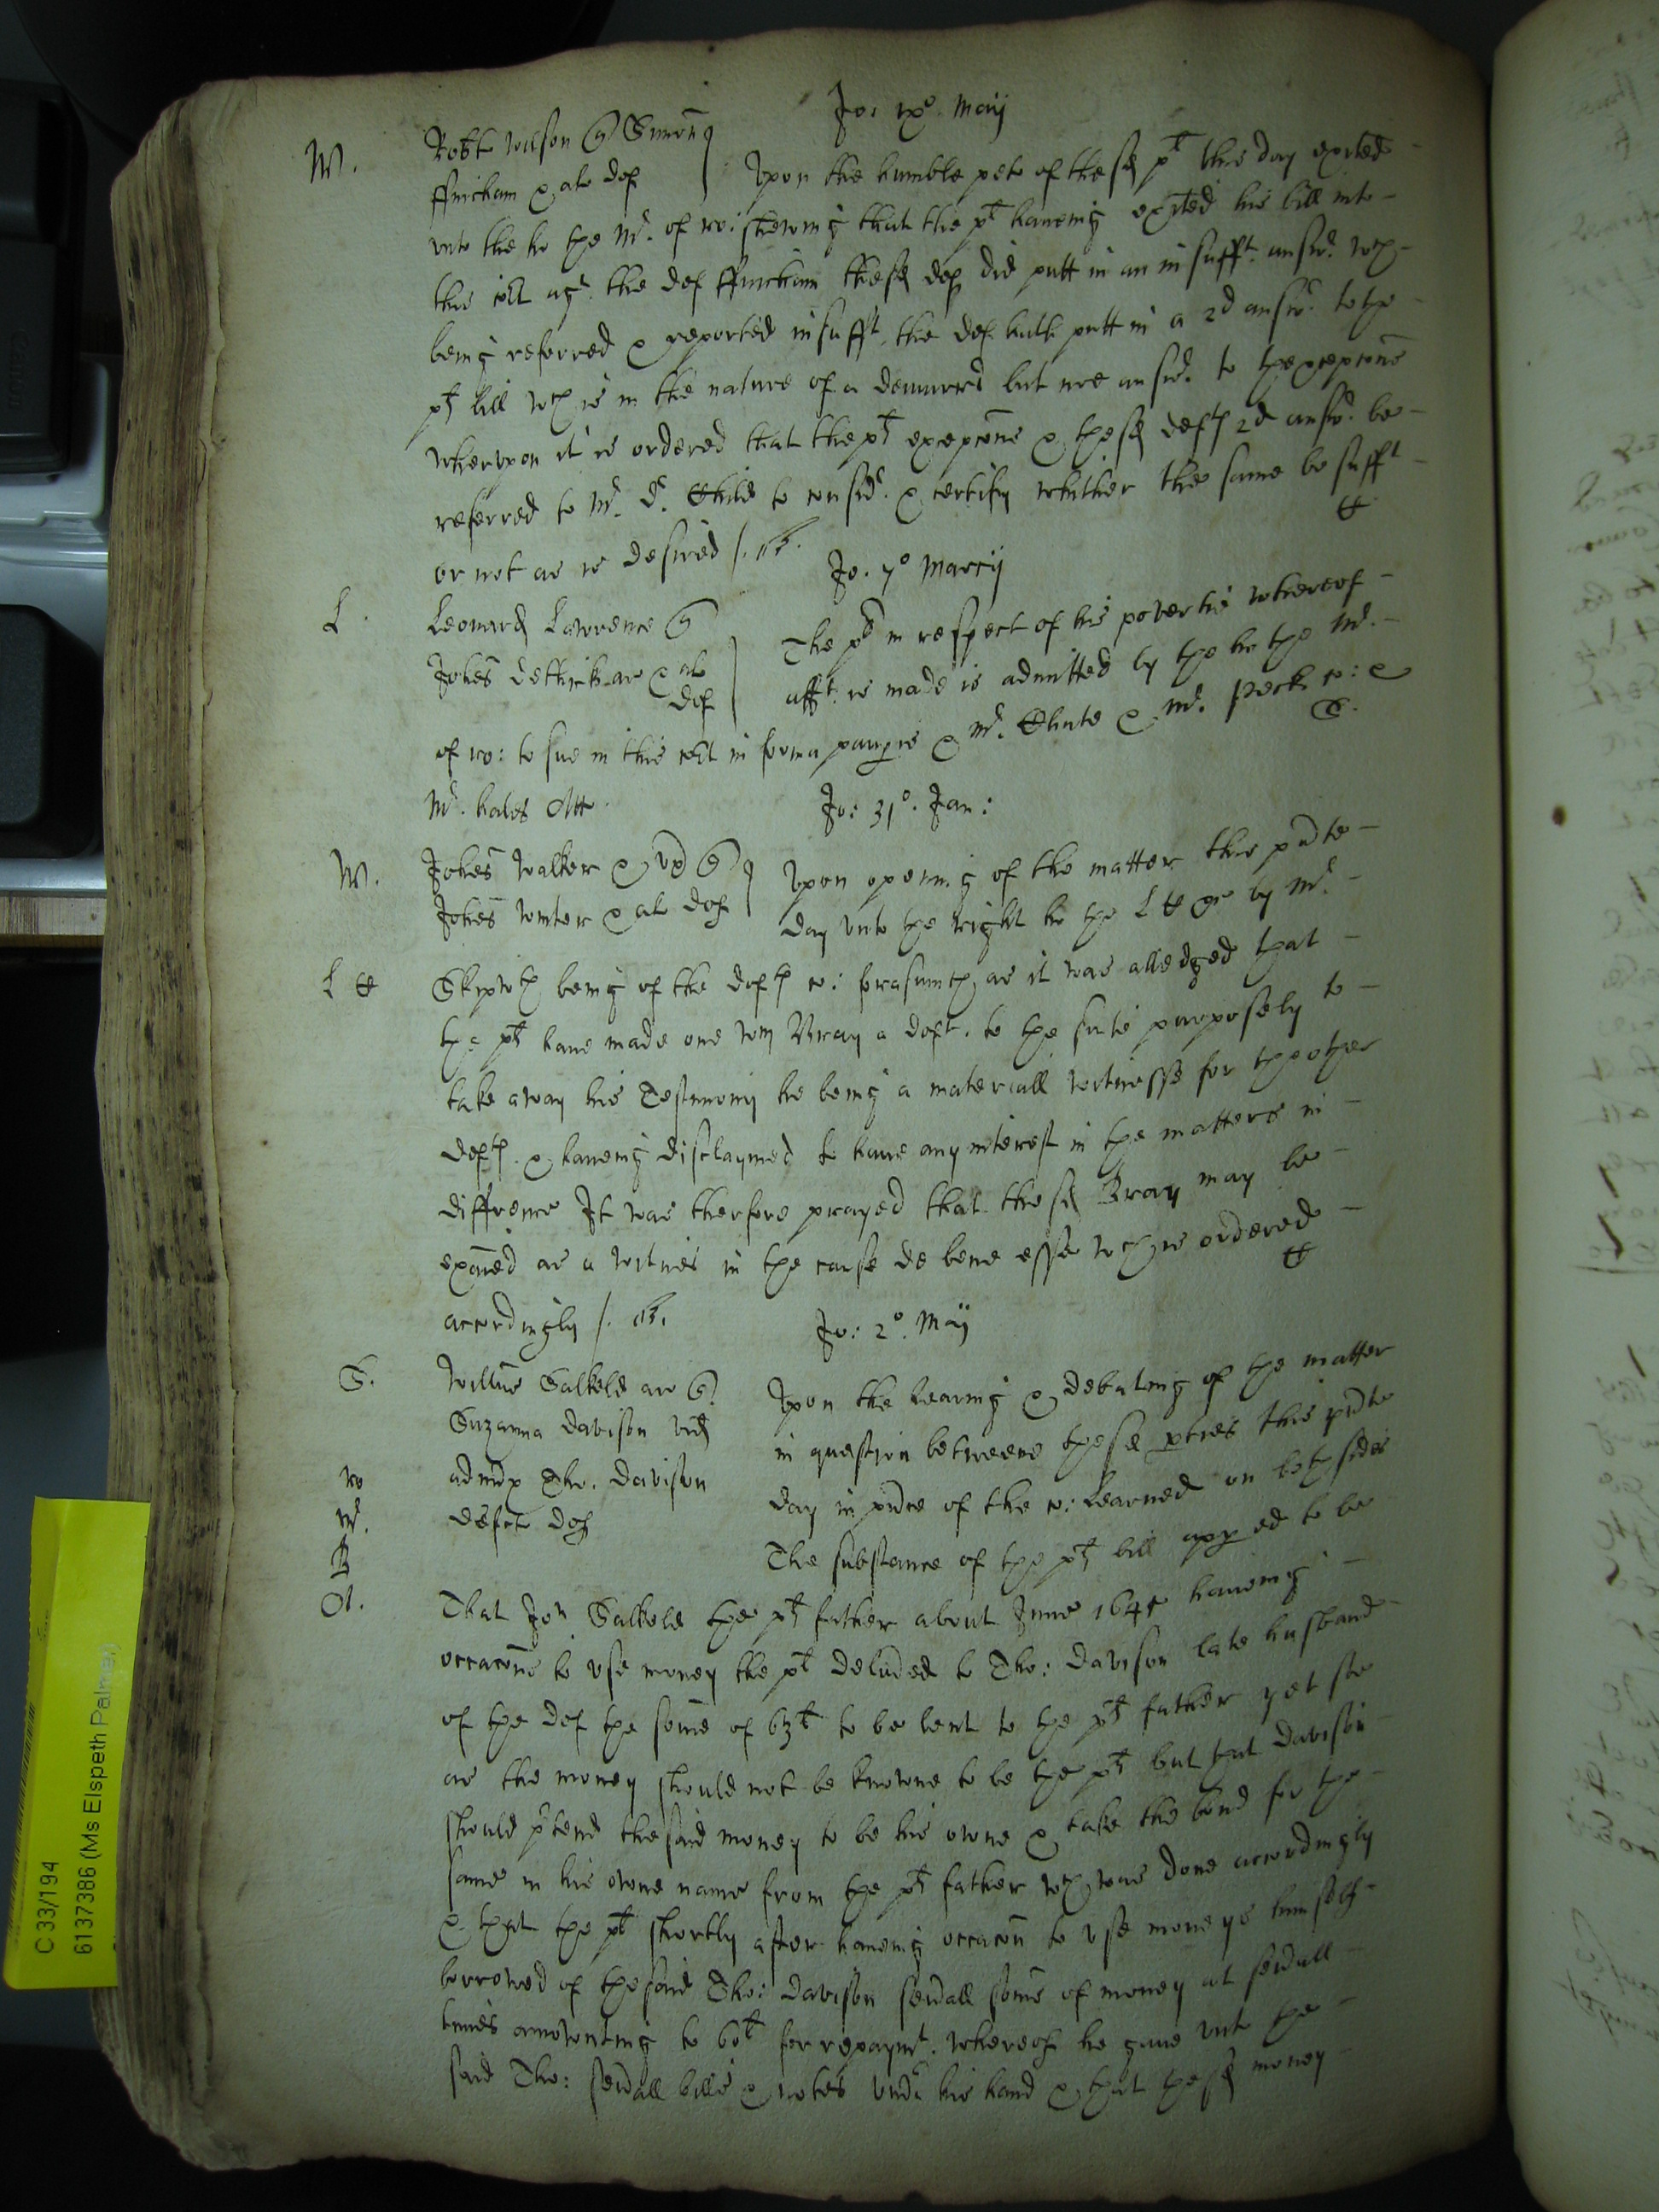 Jo: ixo. Maij
W.
Robt Wilson q Simon
ffincham & al def
Upon the humble peto of the sd plt this day exited
unto the ho the Mr. of ro: shewing that the plt haveing exited his bill into
this Co:rt agt. the def ffincham the sd def did putt in an insufft. answr. wch
being referred & reported insufft the def hath putt in a 2d answr. to the
plts bill wch is in the nature of a demurrer but noe answr. to the excepcons
wherupon it is ordered that the plts excepcons & the sd defts 2d answr. be
referred to Mr. Dr. Childe to considr. & certify whither the same be sufft
or not as is desired /.
Jo. 7o Marcij
L.
Leonard Lawrence q
Johes ar & al
def
The plt in respect of his povertie whereof
afft. is made is admitted by the ho the Mr.
of ro: to sue in this Co:rt in forma paupis & Mr. Chute & Mr. Peck co: &
Mr. hales Att.
Jo: 31o. Jan:
W.
Johes Walker & ux q
Johes Winter & al def
Upon opening of the matter this pnte
day unto the right ho the L C by Mr.
L C
Skipwth being of the defts co: forasmuch as it was alledged that
the plts have made one Wm Bray a deft. to the suite purposely to
take away his Testimony he being a materiall witnesse for the other
defts. & haveing disclaymed to have any interest in the matters in
diffrence It was therfore prayed that the sd Bray may be
exaied as a witnes in the cause de bene esse wch is ordered
accordingly /.
Jo: 2o. Maij
S.
Willms Salkeld ar q
Suzanna Davison vid
admx Tho. Davison
defct def
Upon the heareing & debateing of the matter
in question betweene these pties this pnte
day in pnce of the co: learned on both sides
The substance of the plts bill appred to be
ro
Mr.
B
A.
That Jon Salkeld the plts father about June 1645 haveing
occacons to use money the plt delived to Tho: Davison late husband
of the def the some of 63l to be lent to the plts father yet soe
as the money should not be knowne to be the plts but that Davison
should ptend the said money to be his owne & take the bond for the
same in his owne name from the plts father wch was done accordingly
& that the plt shortly after haveing occacon to use moneys himself
borrowed of the said Tho: Davison sevall somes of money at sevall
times amounting to 60l for repaymt. whereof he gave unto the
said Tho: sevall bills & notes undr his hand & that the sd money
C 33/194
6137386 (Ms Elspeth Palmer)